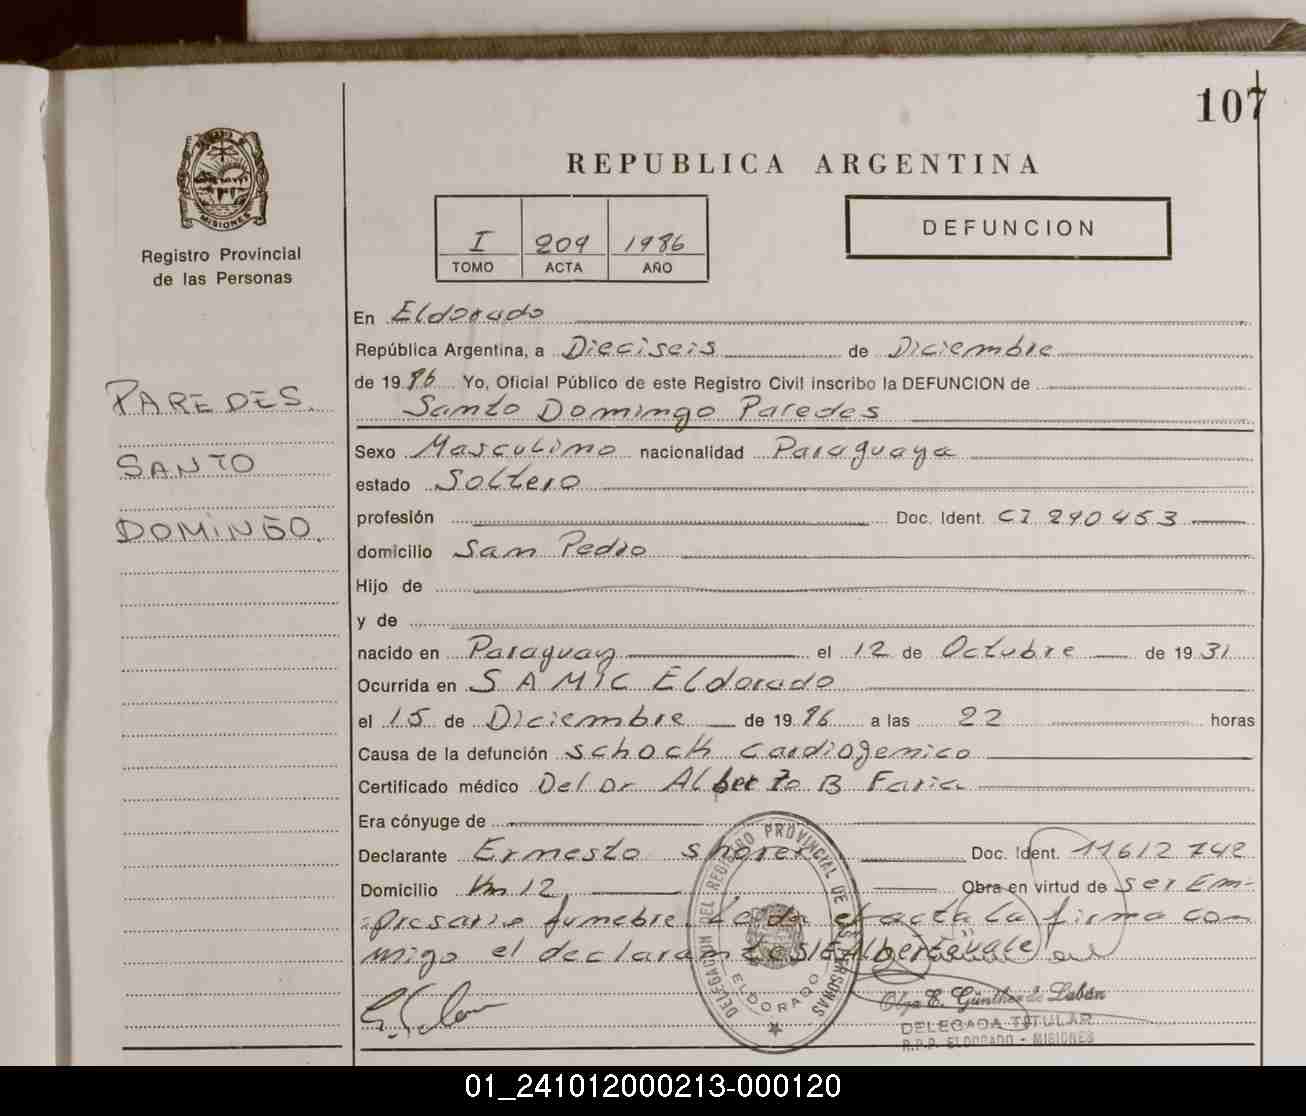 107
REPUBLICA ARGENTINA
MISIONES
Registro Provincial
de las Personas
I 209 1986
TOMO ACTA AÑO
DEFUNCION
PAREDES.
SANTO
DOMINGO.
En Eldorado
República Argentina, a Dieciseis de Diciembre
de 1986 Yo, Oficial Público de este Registro Civil inscribo la DEFUNCION de
Santo Domingo Paredes
Sexo Masculino nacionalidad Paraguaya
estado Soltero
profesión Doc. Ident. CI 290453
domicilio San Pedro
Hijo de
y de
nacido en Paraguay el 12 de Octubre de 1931
Ocurrida en SAMIC Eldorado
el 15 de Diciembre de 1986 a las 22 horas
Causa de la defunción schock cardiogenico
Certificado médico Del Dr Alberto B Faria
Era cónyuge de
Declarante Ernesto shorer Doc. Ident. 11612742
Domicilio Km 12 Obra en virtud de ser Em-
presario funebre. Leida el acta la firma con-
migo el declarante S/E Alberto vale
DELEGACION DEL REGISTRO PROVINCIAL DE LAS PERSONAS
ELDORADO
Olga E. Günther de Labán
DELEGADA TITULAR
R.P.P. ELDORADO - MISIONES
01_241012000213-000120